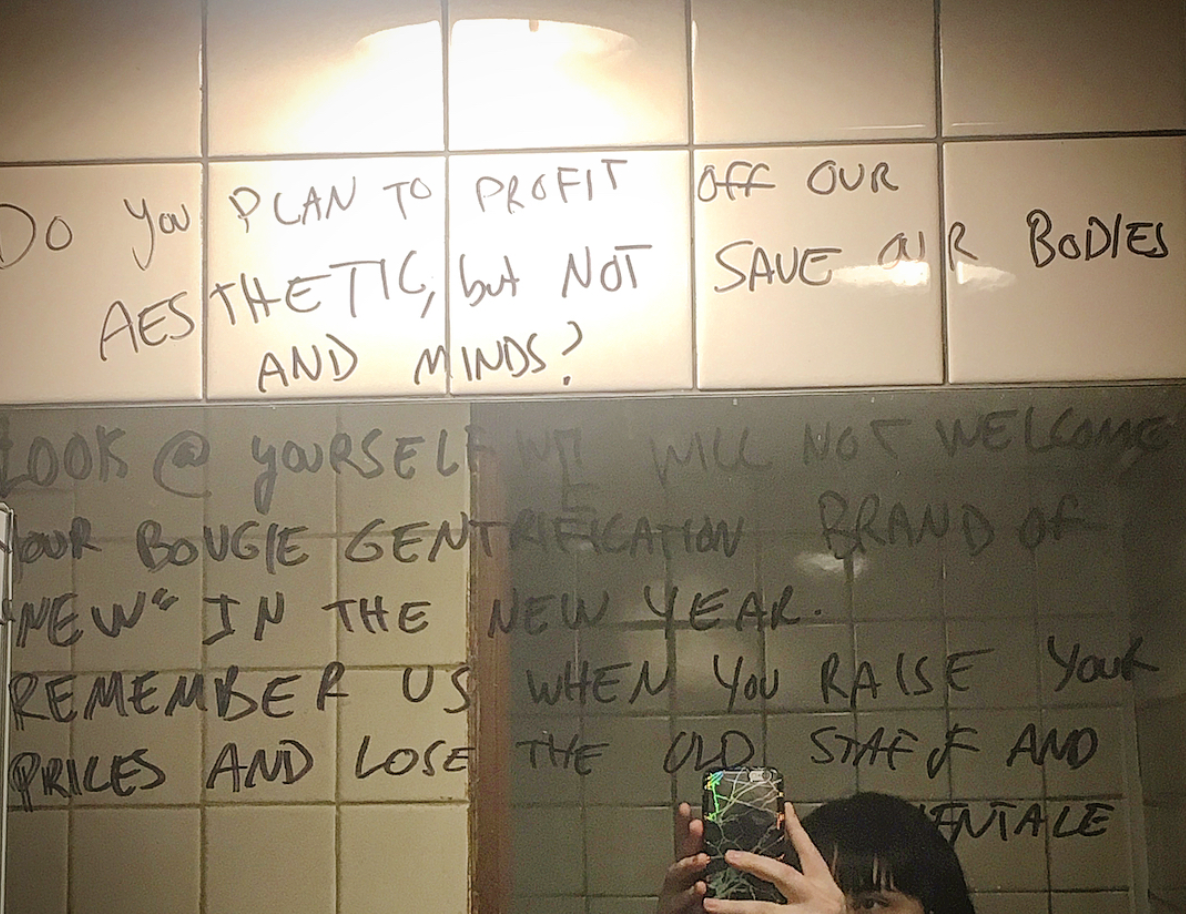 Do You PLAN TO PROFIT Off OUR
AESTHETIC, but NOT SAVE OUR BODIES
AND MINDS?
LOOK @ YOURSELF WE WILL NOT WELCOME
YOUR BOUGIE GENTRIFICATION BRAND Of
"NEW" IN THE NEW YEAR.
REMEMBER US WHEN YOU RAISE YOUR
PRICES AND LOSE THE OLD STAFF AND